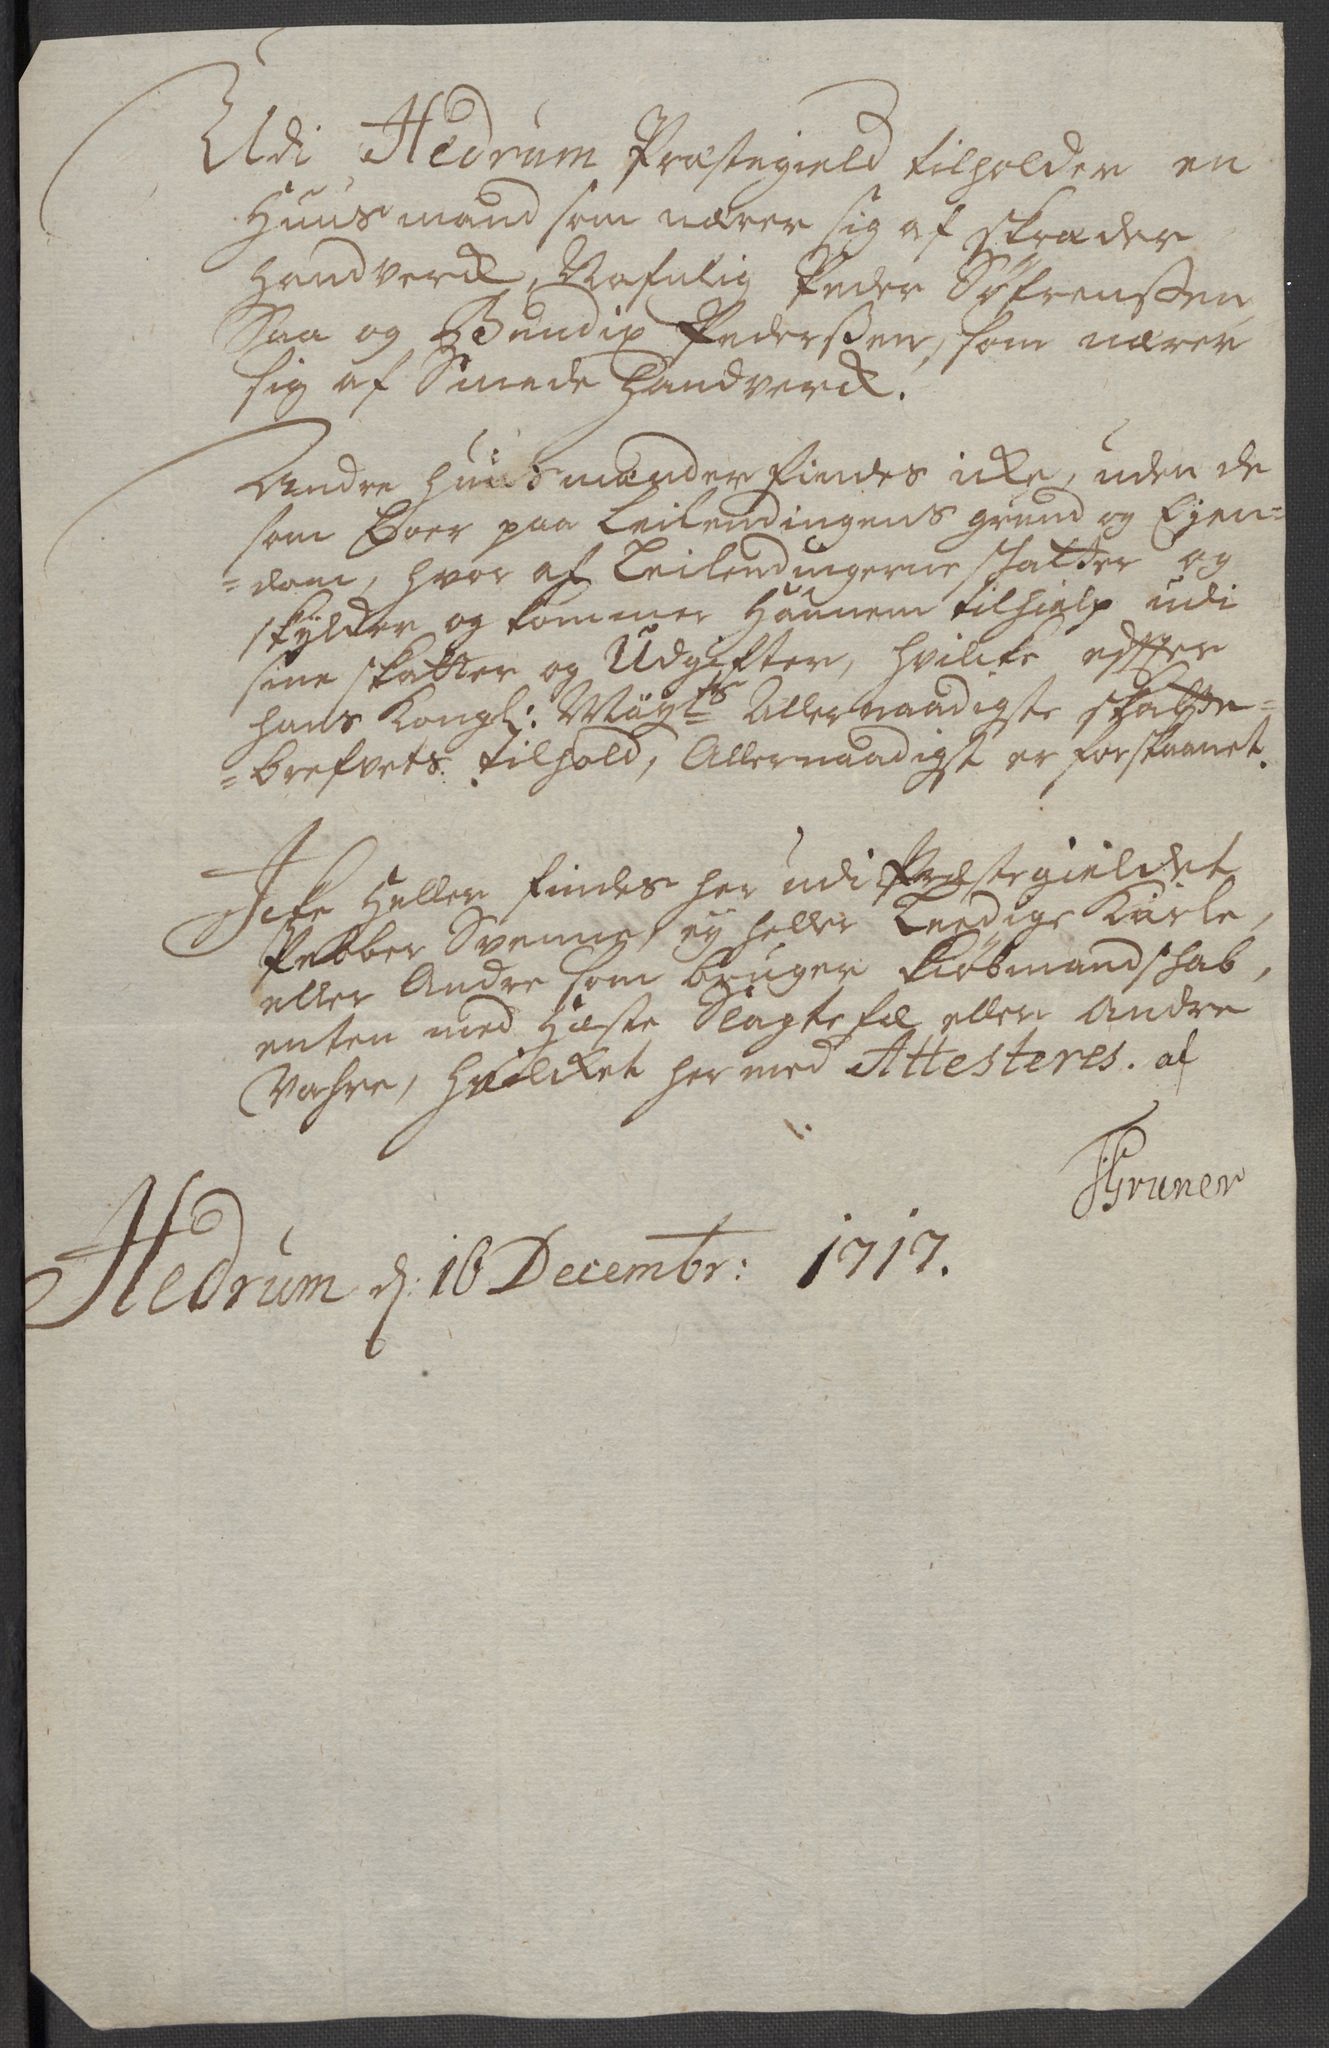 Udi Hedrum Præstegield tilholder en
Huusmand som nærer sig af skræder
Handverck, Nafnlig Peder Søfrenssen
Saa og Bendix Pederssen, som nærer
sig af Smede Handverck.
Andre huusmænder findes icke, uden de
som boer paa Leilendingens grund og Eÿen=
=dom, hvor af Leilendingerne skatter og
skÿlder og kommer Hannem til hielp udi
sine skatter og Udgifter, hvilcke effter
hans Kongl: Maÿts Allernaadigste skatte=
=brefvets tilhold, Allernaadigst er forskaanet.
Icke Heller findes her udi Præstegieldet
Pebber Svenne, eÿ heller Leedige Karle,
eller Andre som bruger kiøbmandskab,
enten med Heste Slagte fæ eller Andre
Vahre, hvilcket her med Attesteres. af
Gruner
Hedrum d: 16 Decembr: 1717.